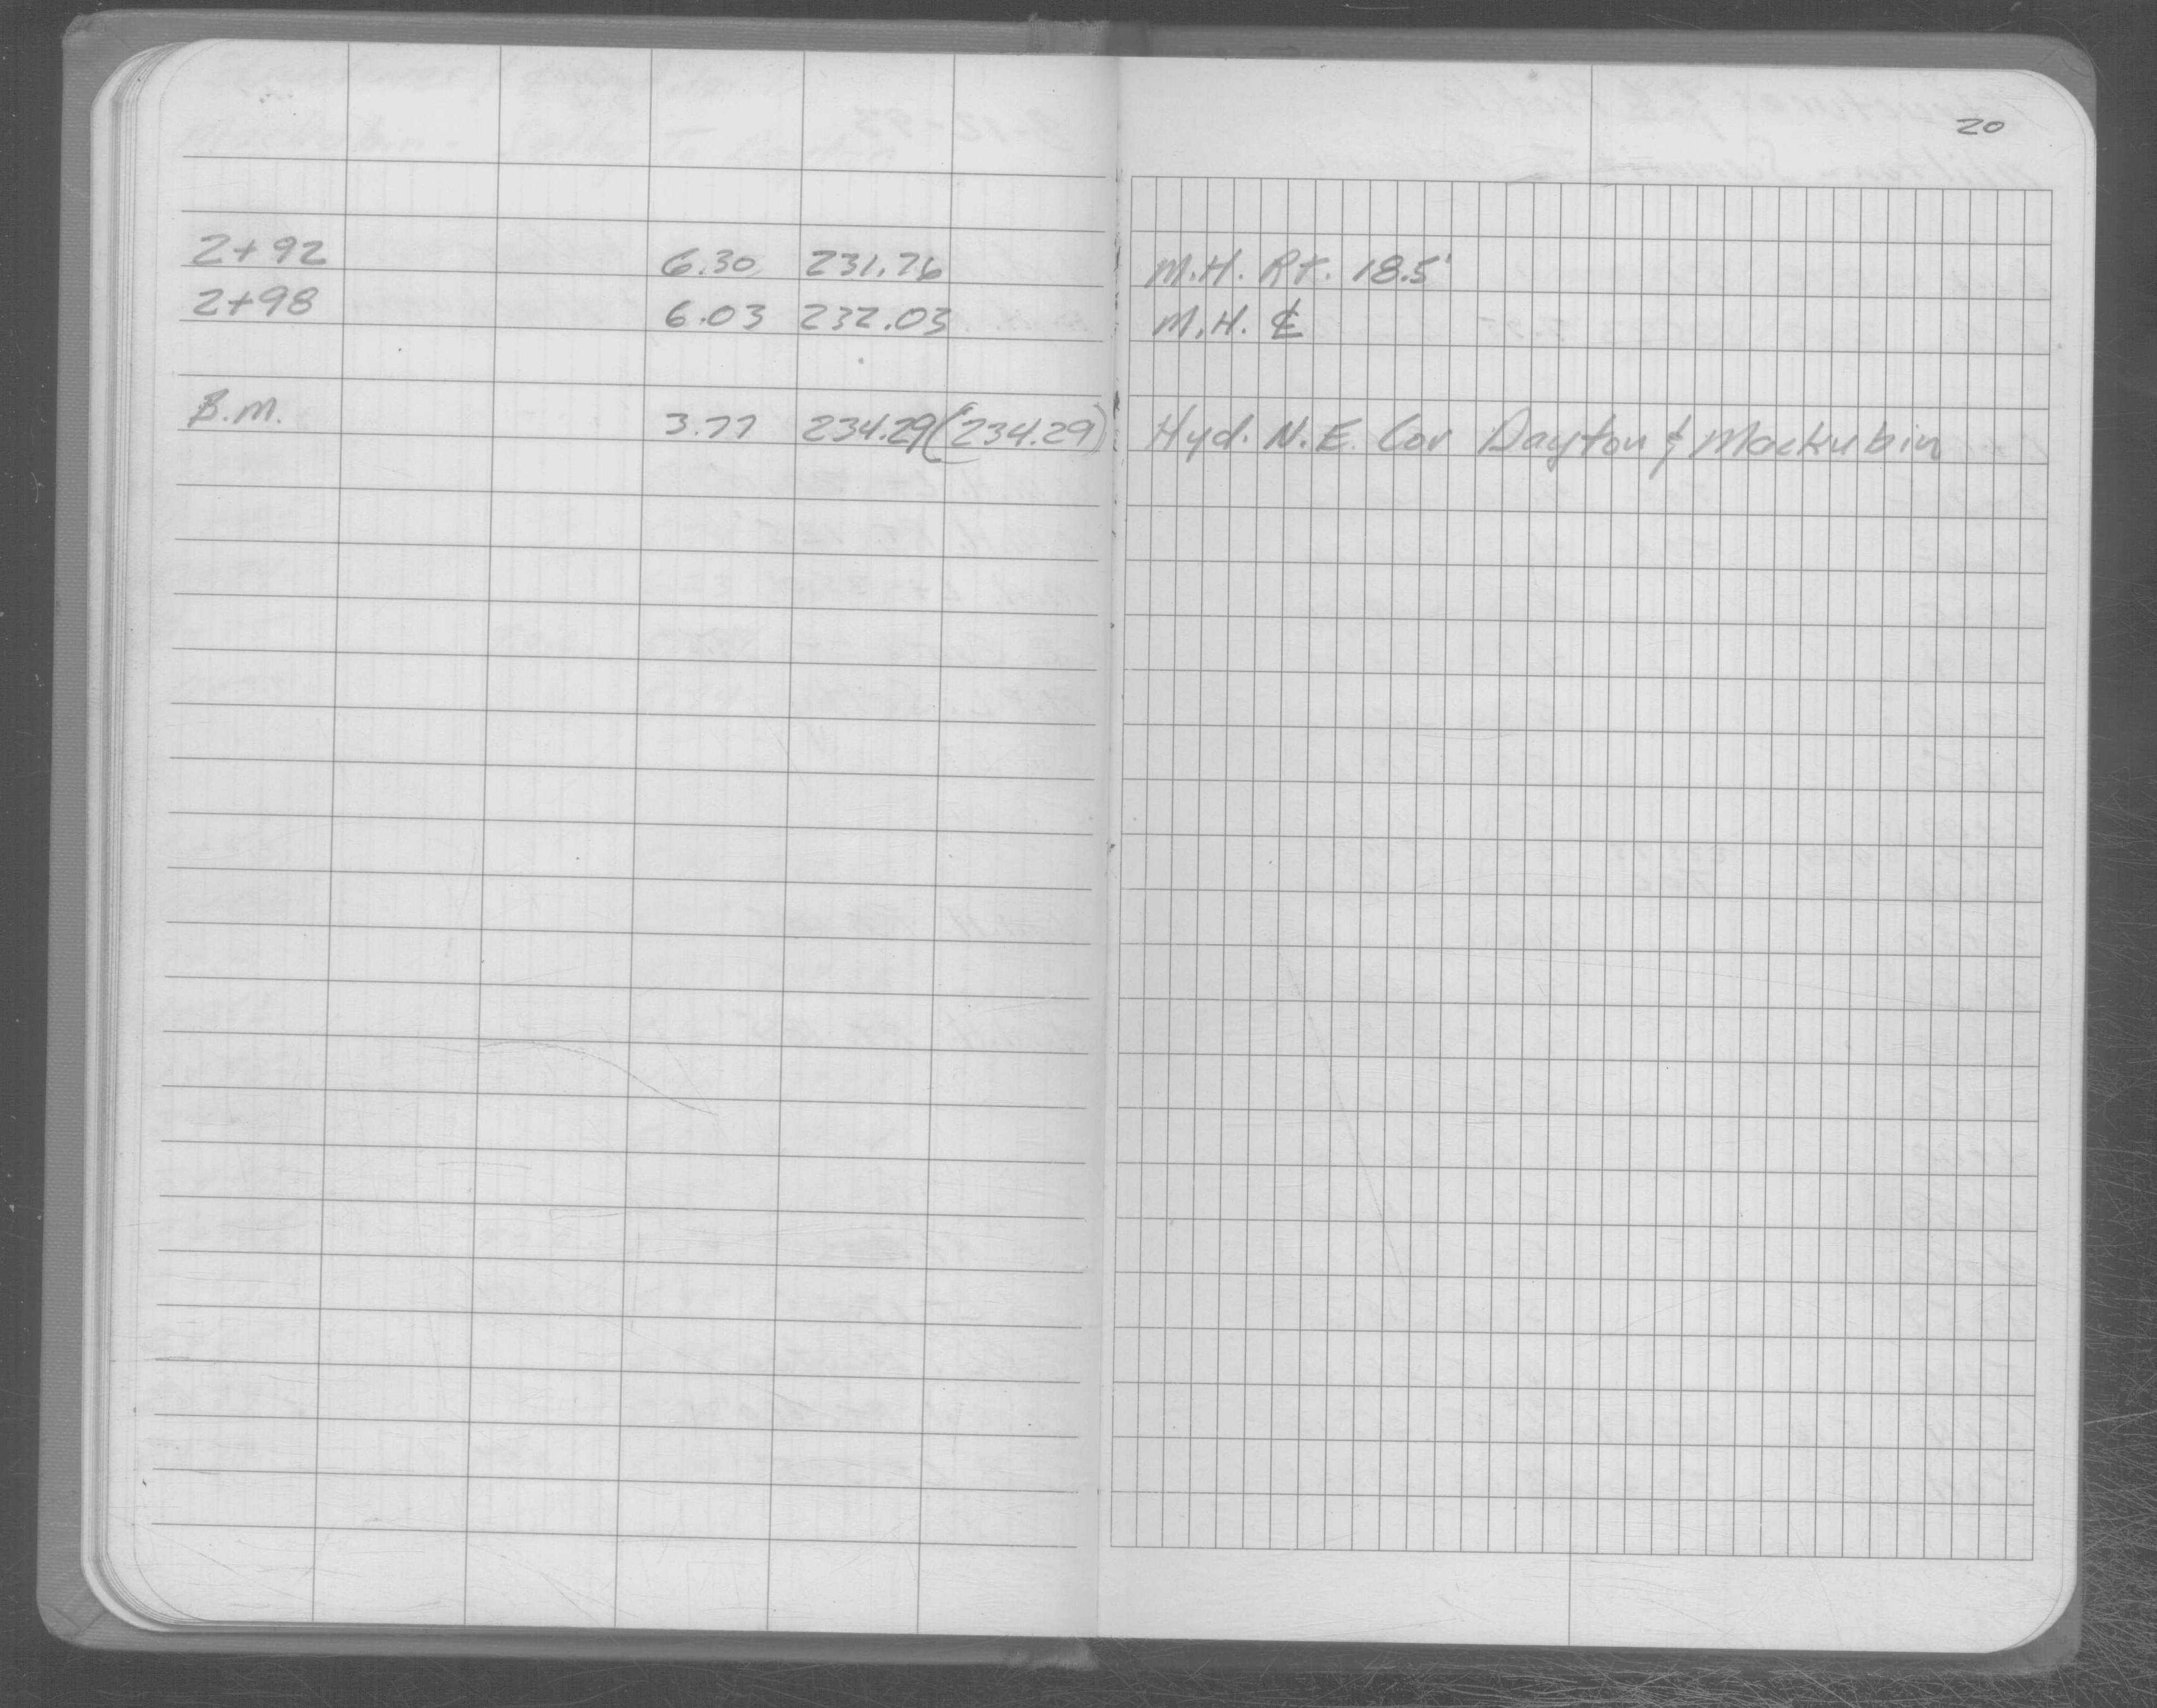 20
2+92 6.30 231.76 M.H. Rt. 18.5'
2+98 6.03 232.03 M.H. ℄
B.M. 3.77 234.29 (234.29) Hyd. N.E. Cor Dayton & Mackubin